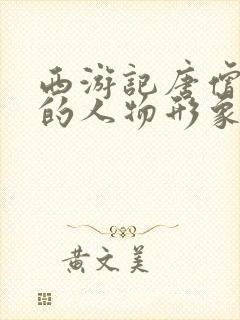 西游記唐僧
的人物形象
黄文美